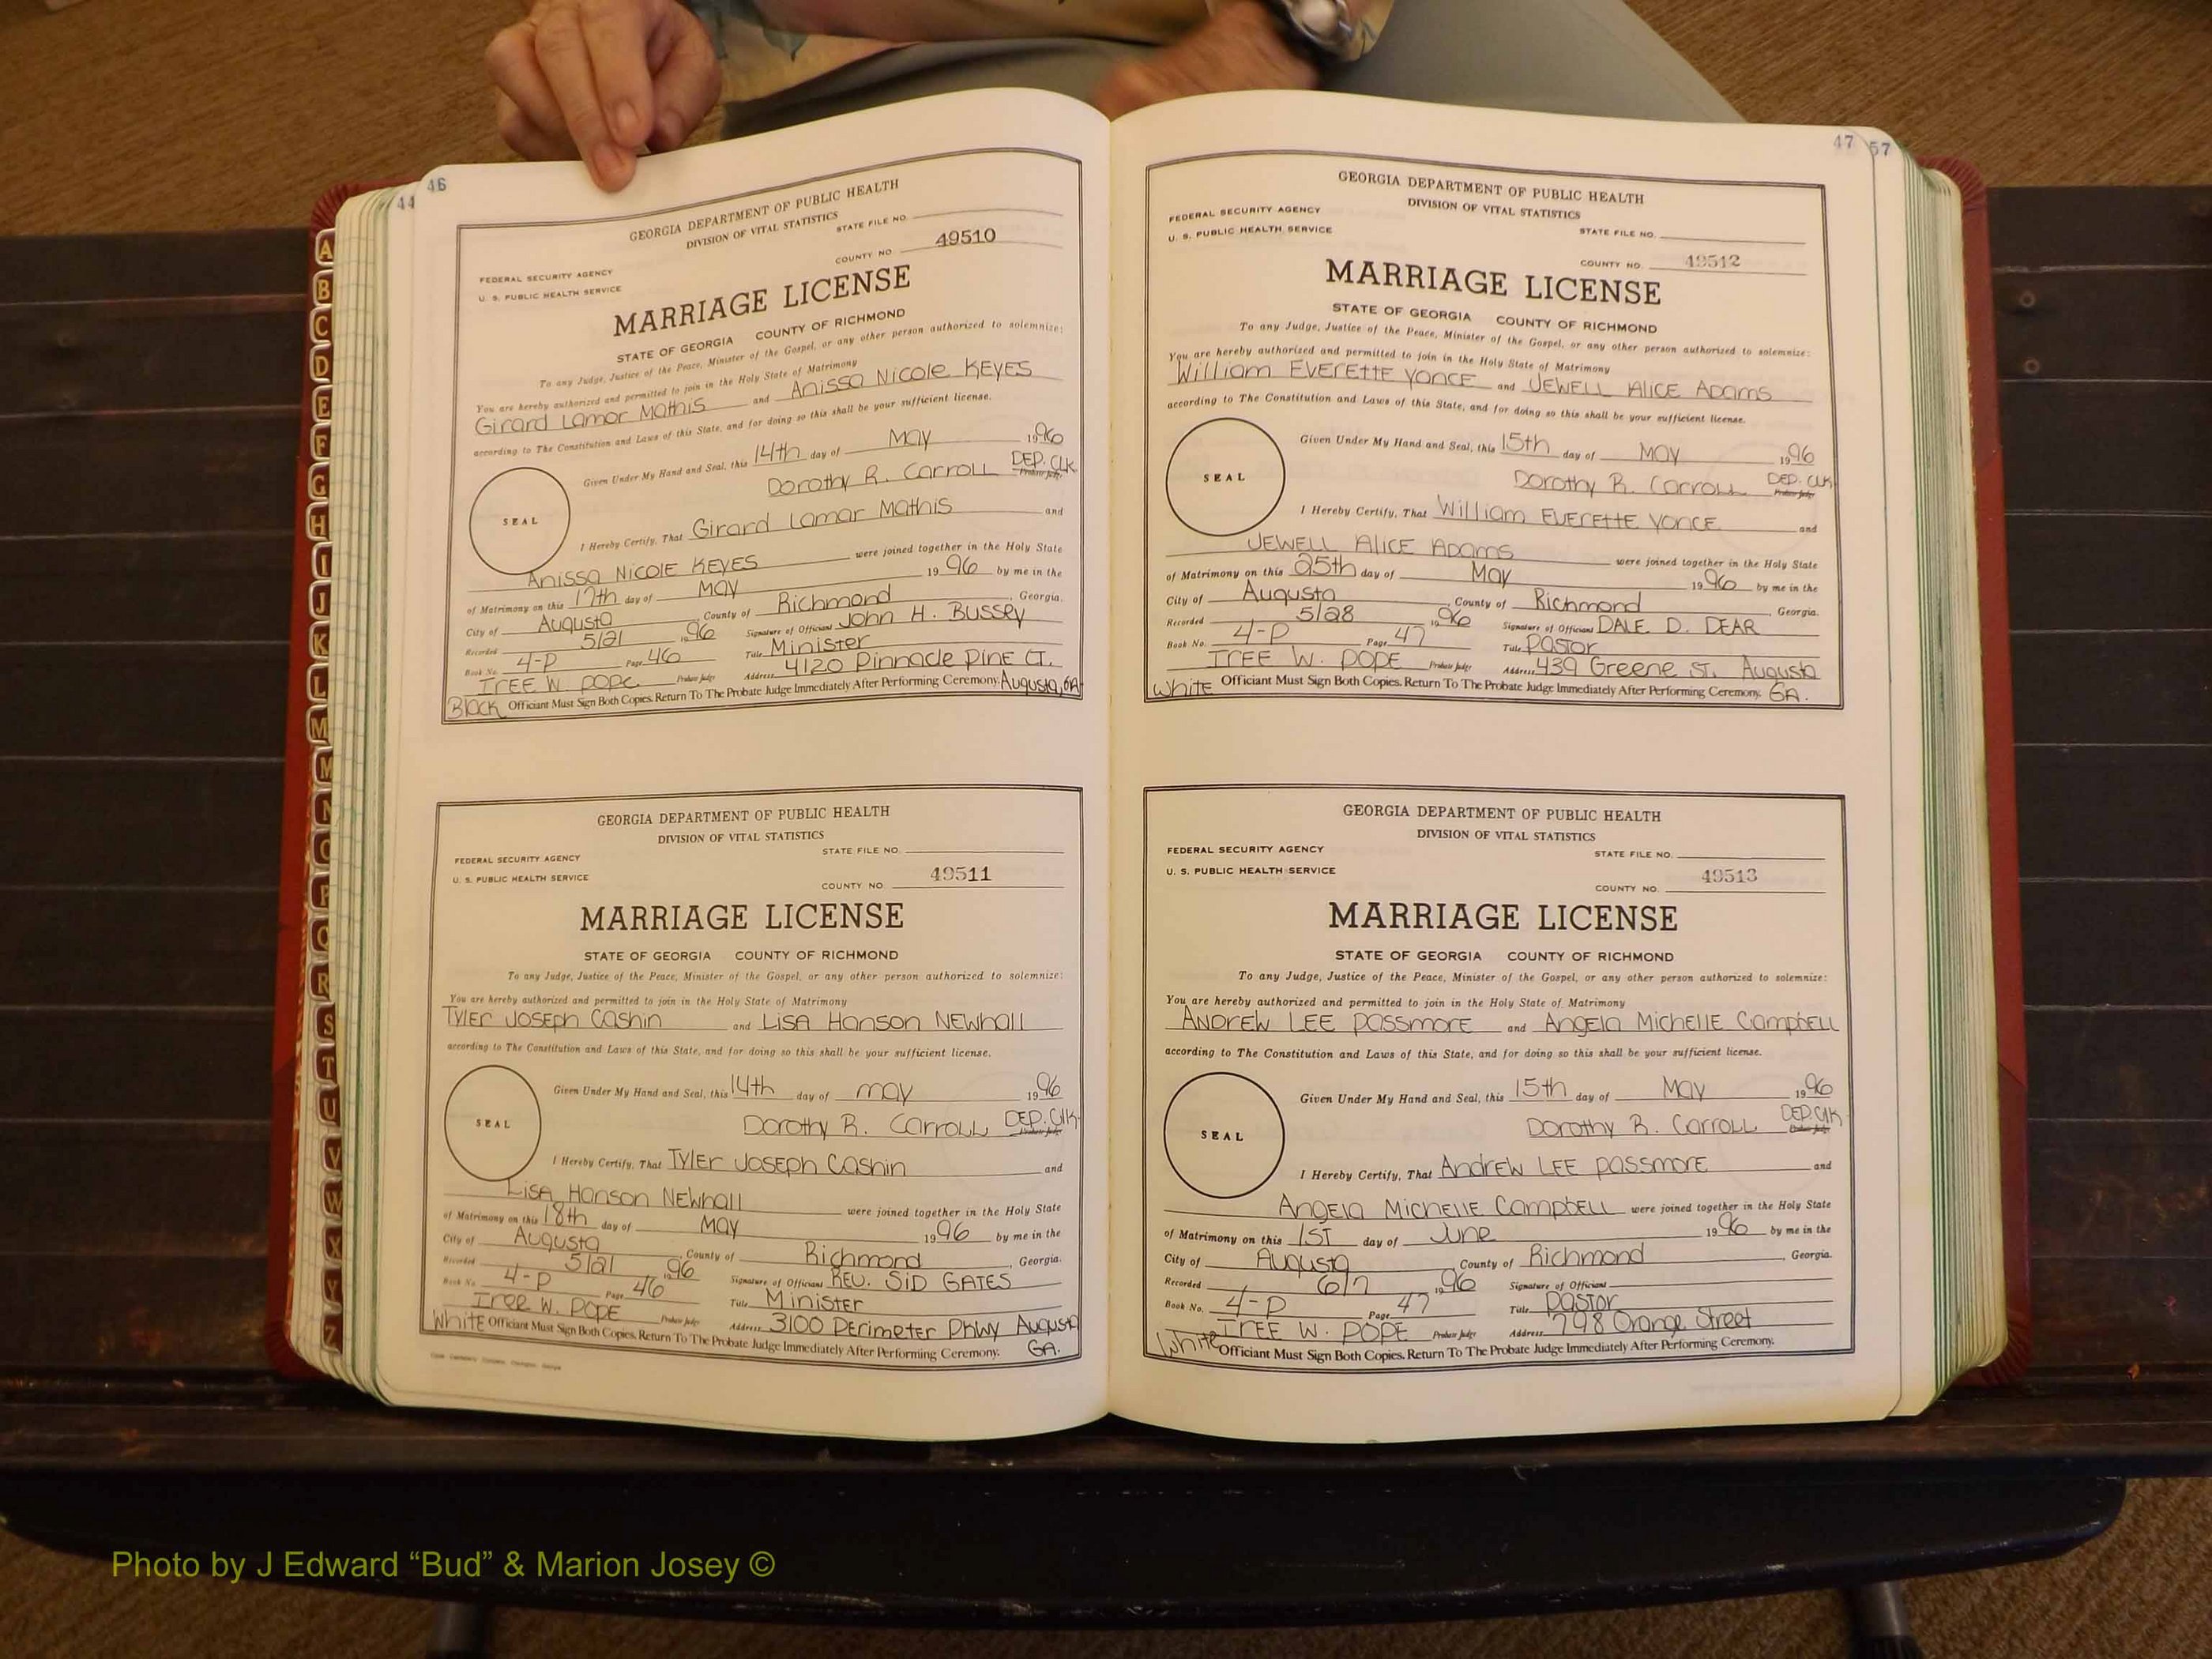 44 46
GEORGIA DEPARTMENT OF PUBLIC HEALTH
DIVISION OF VITAL STATISTICS
STATE FILE NO.
COUNTY NO. 49510
FEDERAL SECURITY AGENCY
U. S. PUBLIC HEALTH SERVICE
MARRIAGE LICENSE
STATE OF GEORGIA COUNTY OF RICHMOND
To any Judge, Justice of the Peace, Minister of the Gospel, or any other person authorized to solemnize:
You are hereby authorized and permitted to join in the Holy State of Matrimony
Girard Lamar Mathis and Anissa Nicole Keyes
according to The Constitution and Laws of this State, and for doing so this shall be your sufficient license.
SEAL
Given Under My Hand and Seal, this 14th day of May 1996
Dorothy R. Carroll DEP. CLK. Probate Judge
I Hereby Certify, That Girard Lamar Mathis and
Anissa Nicole Keyes were joined together in the Holy State
of Matrimony on this 17th day of May 1996 by me in the
City of Augusta County of Richmond, Georgia.
Recorded 5/21 1996 Signature of Officiant John H. Bussey
Book No. 4-P Page 46 Title Minister
Iree W. Pope Probate Judge Address 4120 Pinnacle Pine Ct.
Black Officiant Must Sign Both Copies. Return To The Probate Judge Immediately After Performing Ceremony. Augusta, GA
GEORGIA DEPARTMENT OF PUBLIC HEALTH
DIVISION OF VITAL STATISTICS
STATE FILE NO.
FEDERAL SECURITY AGENCY
U. S. PUBLIC HEALTH SERVICE
COUNTY NO. 49511
MARRIAGE LICENSE
STATE OF GEORGIA COUNTY OF RICHMOND
To any Judge, Justice of the Peace, Minister of the Gospel, or any other person authorized to solemnize:
You are hereby authorized and permitted to join in the Holy State of Matrimony
Tyler Joseph Cashin and Lisa Hanson Newhall
according to The Constitution and Laws of this State, and for doing so this shall be your sufficient license.
SEAL
Given Under My Hand and Seal, this 14th day of May 1996
Dorothy R. Carroll DEP. Clk. Probate Judge
I Hereby Certify, That Tyler Joseph Cashin and
Lisa Hanson Newhall were joined together in the Holy State
of Matrimony on this 18th day of May 1996 by me in the
City of Augusta, County of Richmond, Georgia.
Recorded 5/21 1996 Signature of Officiant Rev. Sid Gates
Book No. 4-P Page 46 Title Minister
Iree W. Pope Probate Judge Address 3100 Perimeter Pkwy Augusta
White Officiant Must Sign Both Copies. Return To The Probate Judge Immediately After Performing Ceremony. GA.
47 57
GEORGIA DEPARTMENT OF PUBLIC HEALTH
DIVISION OF VITAL STATISTICS
FEDERAL SECURITY AGENCY
U. S. PUBLIC HEALTH SERVICE
STATE FILE NO.
COUNTY NO. 49512
MARRIAGE LICENSE
STATE OF GEORGIA COUNTY OF RICHMOND
To any Judge, Justice of the Peace, Minister of the Gospel, or any other person authorized to solemnize:
You are hereby authorized and permitted to join in the Holy State of Matrimony
William Everette Yonce and Jewell Alice Adams
according to The Constitution and Laws of this State, and for doing so this shall be your sufficient license.
SEAL
Given Under My Hand and Seal, this 15th day of May 1996
Dorothy R. Carroll DEP. CLK. Probate Judge
I Hereby Certify, That William Everette Yonce and
Jewell Alice Adams were joined together in the Holy State
of Matrimony on this 25th day of May 1996 by me in the
City of Augusta, County of Richmond, Georgia.
Recorded 5/28 1996 Signature of Officiant DALE D. DEAR
Book No. 4-P Page 47 Title Pastor
Iree W. Pope Probate Judge Address 439 Greene St. Augusta
White Officiant Must Sign Both Copies. Return To The Probate Judge Immediately After Performing Ceremony. GA.
GEORGIA DEPARTMENT OF PUBLIC HEALTH
DIVISION OF VITAL STATISTICS
FEDERAL SECURITY AGENCY
STATE FILE NO.
U. S. PUBLIC HEALTH SERVICE
COUNTY NO. 49513
MARRIAGE LICENSE
STATE OF GEORGIA COUNTY OF RICHMOND
To any Judge, Justice of the Peace, Minister of the Gospel, or any other person authorized to solemnize:
You are hereby authorized and permitted to join in the Holy State of Matrimony
Andrew Lee Passmore and Angela Michelle Campbell
according to The Constitution and Laws of this State, and for doing so this shall be your sufficient license.
SEAL
Given Under My Hand and Seal, this 15th day of May 1996
Dorothy R. Carroll DEP. Clk Probate Judge
I Hereby Certify, That Andrew Lee Passmore and
Angela Michelle Campbell were joined together in the Holy State
of Matrimony on this 1st day of June 1996 by me in the
City of Augusta, County of Richmond, Georgia.
Recorded 6/7 1996 Signature of Officiant
Book No. 4-P Page 47 Title Pastor
Iree W. Pope Probate Judge Address 798 Orange Street
White Officiant Must Sign Both Copies. Return To The Probate Judge Immediately After Performing Ceremony.
A
B
C
D
E
F
G
H
I
J
K
L
M
M
N
O
P
Q
R
S
T
U
V
W
X
Y
Z
Photo by J Edward “Bud” & Marion Josey ©